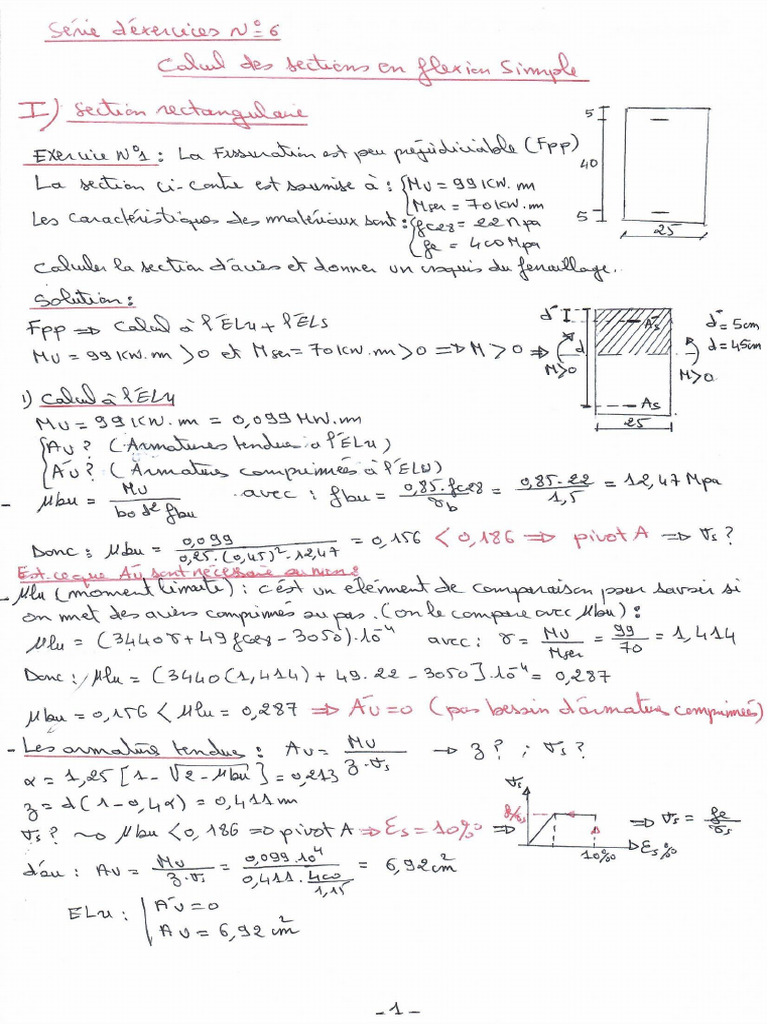 Série d'exercices N° 6
Calcul des sections en flexion Simple
I) Section rectangulaire
Exercice N°1 : La Fissuration est peu préjudiciable (Fpp)
La section ci-contre est soumise à : { Mu = 99 KW. m
Mser = 70 KW. m
Les caractéristiques des matériaux sont : { fc28 = 22 Mpa
fe = 400 Mpa
5
40
5
25
Calculer la section d'aciers et donner un croquis du ferraillage.
Solution :
Fpp ⇒ Calcul à l'ELu + l'ELS
Mu = 99 KW. m > 0 et Mser = 70 KW. m > 0 ⇒ M > 0 ⇒
d'
d
M>0
A's
As
25
M>0
d' = 5cm
d = 45cm
1) Calcul à l'ELu
Mu = 99 KW. m = 0,099 MW. m
{ Au ? (Armatures tendues à l'ELu)
A'u ? (Armatures comprimées à l'ELU)
- μbu = Mu / b0 d² fbu avec : fbu = 0,85. fc28 / γb = 0,85. 22 / 1,5 = 12,47 Mpa
Donc : μbu = 0,099 / 0,25. (0,45)². 12,47 = 0,156 < 0,186 ⇒ pivot A ⇒ σs ?
Est. ce que A'u sont nécessaire ou non :
- μlu (moment limite) : c'est un élément de comparaison pour savoir si
on met des aciers comprimés ou pas. (on le compare avec μbu) :
μlu = (3440 γ + 49 fc28 - 3050). 10⁻⁴ avec : γ = Mu / Mser = 99 / 70 = 1,414
Donc : μlu = (3440 (1,414) + 49. 22 - 3050]. 10⁻⁴ = 0,287
μbu = 0,156 < μlu = 0,287 ⇒ A'u = 0 (pas besoin d'armatures comprimées)
- Les armatures tendues : Au = Mu / z. σs → z ? ; σs ?
α = 1,25 [1 - √2 - μbu] = 0,213
z = d (1 - 0,4α) = 0,411 m
σs ? ~ μbu < 0,186 ⇒ pivot A ⇒ εs = 10‰ ⇒
σs
fe/γs
10‰
εs ‰
⇒ σs = fe / γs
d'où : Au = Mu / z. σs = 0,099. 10⁴ / 0,411. 400 / 1,15 = 6,92 cm²
ELu : { A'u = 0
Au = 6,92 cm²
- 1 -